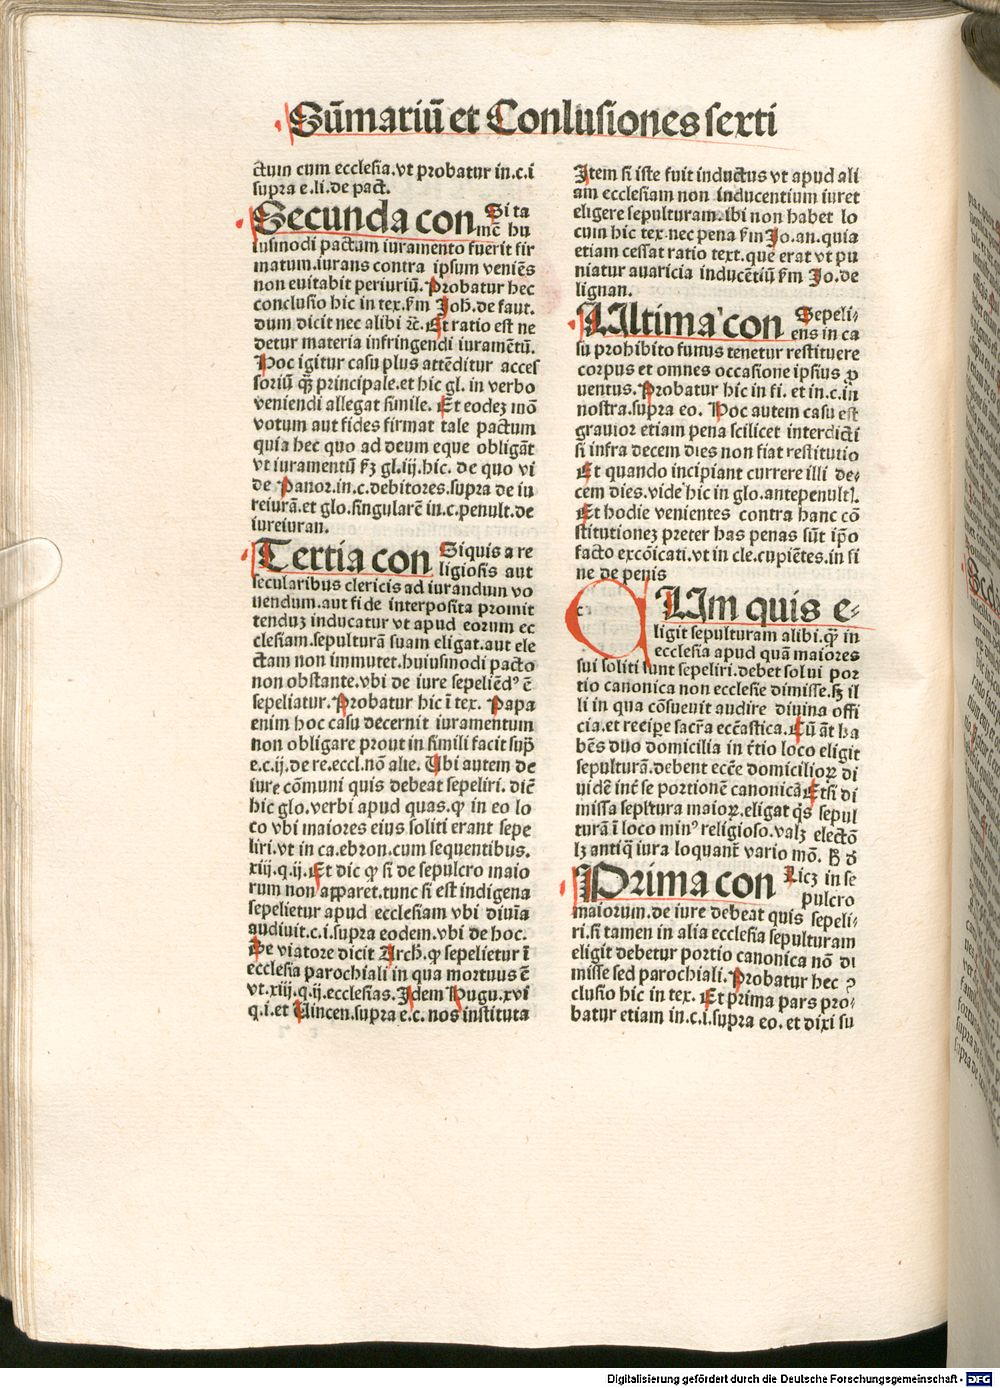 Sūmariū et Conlusiones sexti
ctum cum ecclesia.vt probatur in.c.i
supra e.li.de pact.
Secunda con Si ta
mē hu
iusmodi pactum iuramento fuerit fir
matum.iurans contra ipsum veniēs
non euitabit periuriū. Probatur hec
conclusio hic in tex.fm Joh.de faut.
dum dicit nec alibi ⁊c. Et ratio est ne
detur materia infringendi iuramētū.
Hoc igitur casu plus attēditur acces
soriū q̄ principale.et hic gl. in verbo
veniendi allegat simile. Et eodeʒ mō
votum aut fides firmat tale pactum
quia hec quo ad deum eque obligāt
vt iuramentū fʒ gl.iij.hic. de quo vi
de Panor.in.c.debitores.supra de iu
reiurā.et glo.singularē in.c.penult.de
iureiuran.
Tertia con Siquis a re
ligiosis aut
secularibus clericis ad iurandum vo
uendum.aut fide interposita promit
tenduʒ inducatur vt apud eorum ec
clesiam.sepulturā suam eligat.aut ele
ctam non immutet.huiusmodi pacto
non obstante.vbi de iure sepeliēdꝰ ē
sepeliatur. Probatur hic ī tex. Papa
enim hoc casu decernit iuramentum
non obligare prout in simili facit sup̄
e.c.ij.de re.eccl.nō alie. Ubi autem de
iure cōmuni quis debeat sepeliri. dic̄
hic glo.verbi apud quas.ꝙ in eo lo
co vbi maiores eius soliti erant sepe
liri.vt in ca.ebron.cum sequentibus.
xiij.q.ij. Et dic ꝙ si de sepulcro maio
rum non apparet.tunc si est indigena
sepelietur apud ecclesiam vbi diuīa
audiuit.c.i.supra eodem.vbi de hoc.
De viatore dicit Arch.ꝙ sepelietur ī
ecclesia parochiali in qua mortuus ē
vt.xiij.q.ij.ecclesias. Idem Hugu.xvi
q.i.et Uincen.supra e.c. nos instituta
Item si iste fuit inductus vt apud ali
am ecclesiam non inducentium iuret
eligere sepulturam.ibi non habet lo
cum hic tex.nec pena fm Jo.an.quia
etiam cessat ratio text.que erat vt pu
niatur auaricia inducētiū fm Jo.de
lignan.
Ultima con Sepeli-
ens in ca
su prohibito funus tenetur restituere
corpus et omnes occasione ipsius ꝓ
uentus. Probatur hic in fi. et in.c.in
nostra.supra eo. Hoc autem casu est
grauior etiam pena scilicet interdicti
si infra decem dies non fiat restitutio
Et quando incipiant currere illi de-
cem dies.vide hic in glo.antepenult.
Et hodie venientes contra hanc cō
stitutioneʒ preter has penas sūt ip̄o
facto excōicati.vt in cle.cupiētes.in fi
ne de penis
c UUm quis e-
ligit sepulturam alibi.ꝙ̄ in
ecclesia apud quā maiores
sui soliti sunt sepeliri.debet solui por
tio canonica non ecclesie dimisse.sʒ il
li in qua cōsueuit audire diuina offi
cia.et recipe sacrā ecc̄astica. Cū āt ha
bēs duo domicilia in t̄tio loco eligit
sepulturā.debent ecc̄e domicilioꝝ di
uidē int̄ se portionē canonicā Etsi di
missa sepltura maioꝝ.eligat q̄s sepul
turā ī loco minꝰ religioso.valʒ electō
lʒ antiq̄ iura loquant̄ vario mō.
Prima con Licʒ in se
pulcro
maiorum.de iure debeat quis sepeli-
ri.si tamen in alia ecclesia sepulturam
eligit debetur portio canonica nō di
misse sed parochiali. Probatur hec ꝯ
clusio hic in tex. Et prima pars pro-
batur etiam in.c.i.supra eo. et dixi su
Digitalisierung gefördert durch die Deutsche Forschungsgemeinschaft - DFG